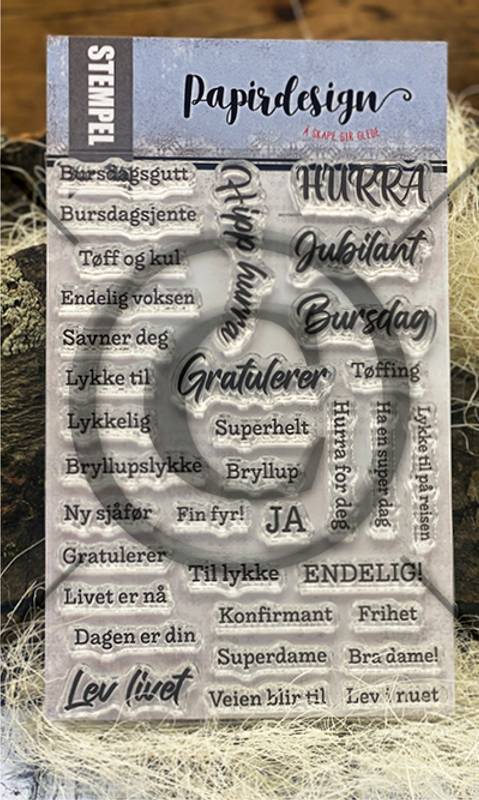 STEMPEL
Papirdesign
Å SKAPE GIR GLEDE
Bursdagsgutt
Bursdagsjente
Tøff og kul
Endelig voksen
Savner deg
Lykke til
Lykkelig
Bryllupslykke
Ny sjåfør
Gratulerer
Livet er nå
Dagen er din
Lev livet
Hipp hurra
Gratulerer
Superhelt
Bryllup
Fin fyr!
JA
Til lykke
Konfirmant
Superdame
Veien blir til
HURRA
Jubilant
Bursdag
Tøffing
Hurra for deg
Ha en super dag
Lykke til på reisen
ENDELIG!
Frihet
Bra dame!
Lev i nuet